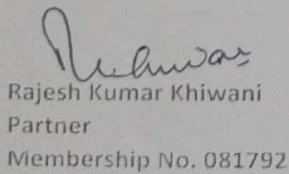 Rajesh Kumar Khiwani
Partner
Membership No. 081792